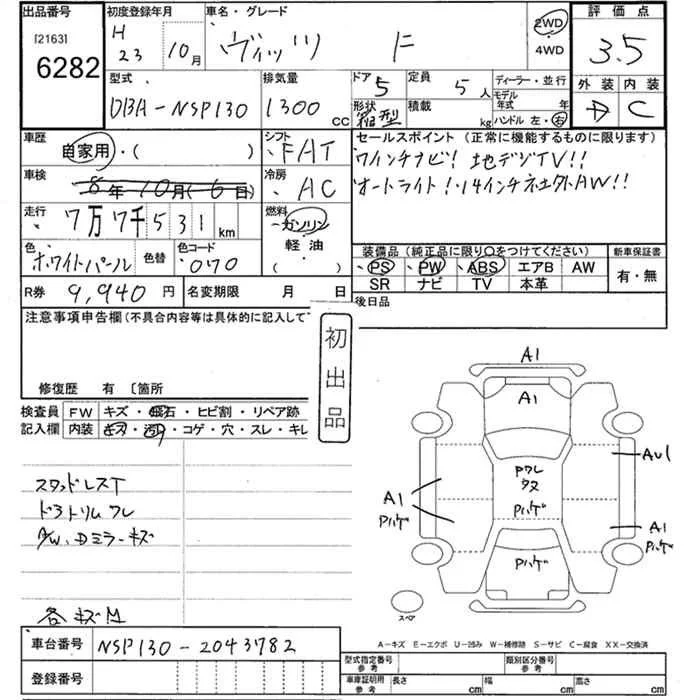 出品番号
[2163]
6282
初度登録年月
H
23 10月
車名・グレード
ヴィッツ F
2WD
4WD
評価点
3.5
外装 内装
D C
型式
DBA-NSP130
排気量
1300 CC
ドア 5
形状 箱型
定員 5人
積載 kg
ディーラー・並行
モデル年式 年
ハンドル 左・右
車歴
自家用・( )
シフト
FAT
車検
8年 10月( 6日)
冷房
AC
走行
7万 7千 531 km
燃料
ガソリン
軽油
( )
色
ホワイトパール
色替
色コード
070
R券 9,940円
名変期限 月 日
セールスポイント (正常に機能するものに限ります)
7インチナビ! 地デジTV!!
オートライト!・14インチネ土外AW!!
装備品 (純正品に限り○をつけてください)
新車保証書
PS PW ABS エアB AW
SR ナビ TV 本革
有・無
後日品
注意事項申告欄(不具合内容等は具体的に記入して
初出品
修復歴 有 〔箇所
検査員記入欄
FW キズ・飛石・ヒビ割・リペア跡
内装 キズ・汚れ・コゲ・穴・スレ・キレ
スタッドレスT
ドアトリムワレ
AW、Dミラーキズ
各キズM
車台番号 NSP130-2043782
登録番号
A1
A1
AU1
Pワレ
タヌ
Pハゲ
A1
Pハゲ
A1
Pハゲ
Pハゲ
スペア
A-キズ E-エクボ U-凹み W-補修跡 S-サビ C-腐食 XX-交換済
型式指定番号 参考
類別区分番号 参考
車庫証明用 参考 長さ cm 幅 cm 高さ cm